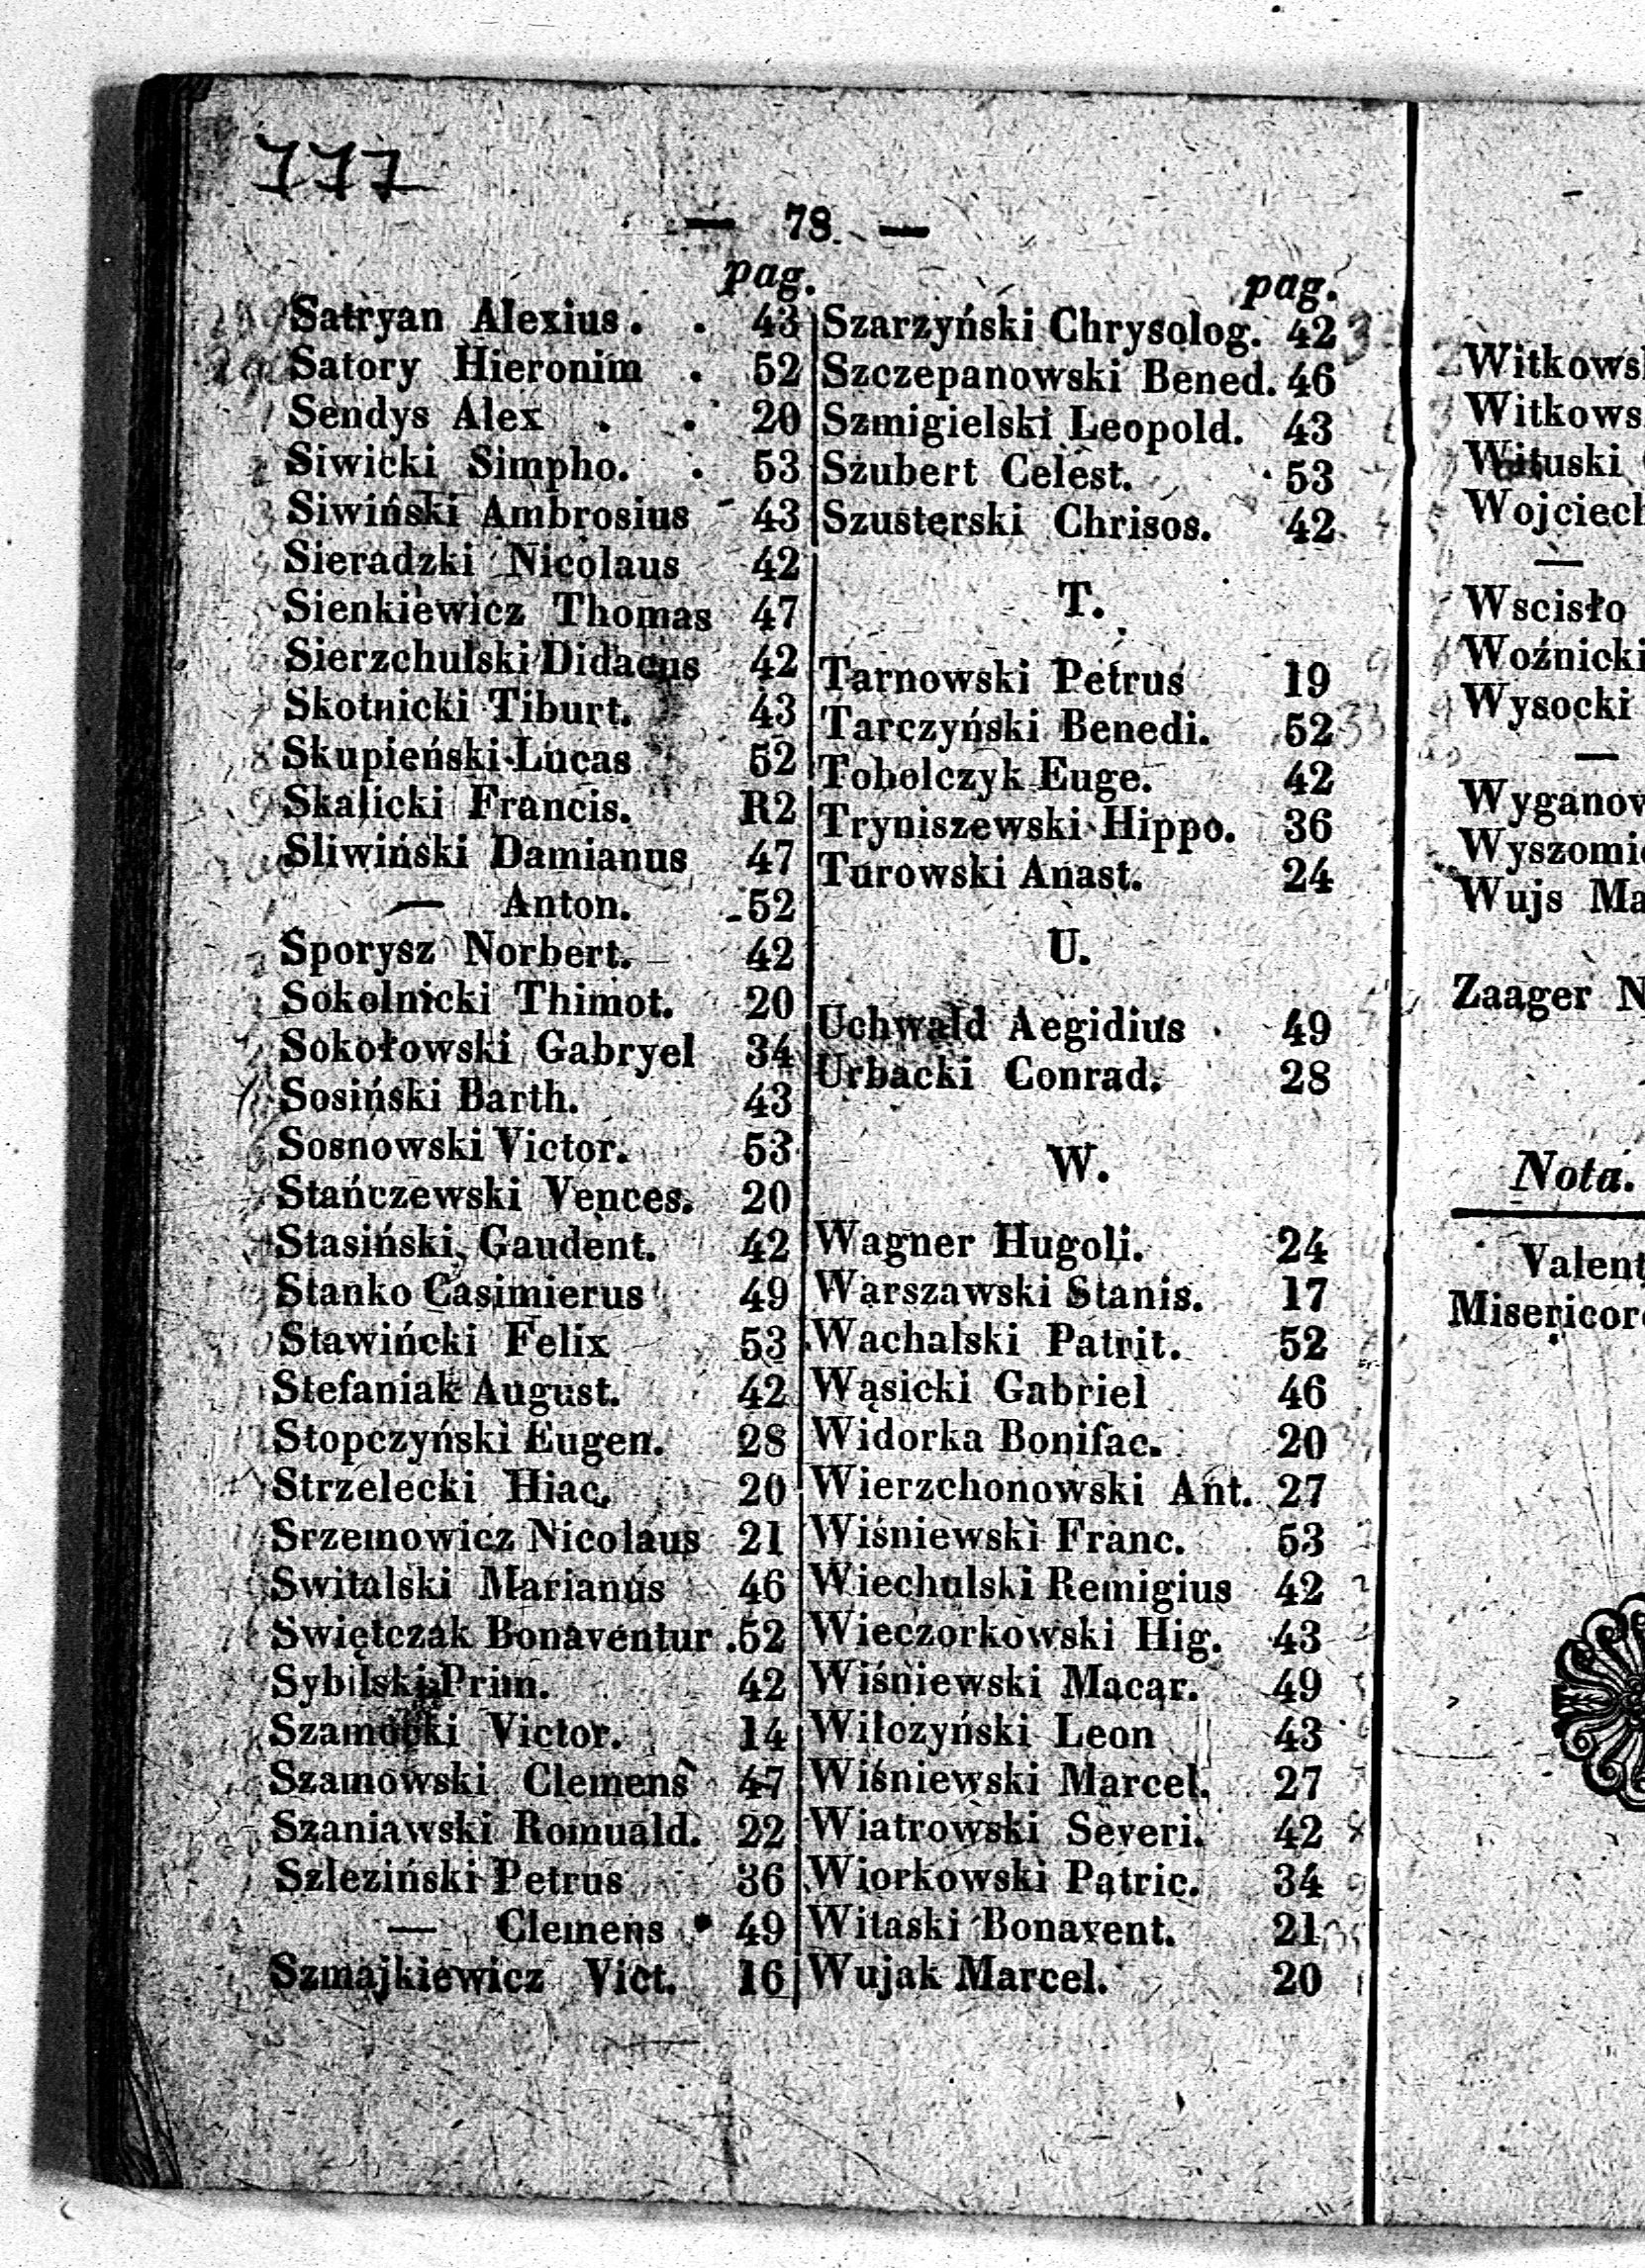 777
— 78. —
pag.
Satryan Alexius . . 43
Satory Hieronim . 52
Sendys Alex . . 20
Siwicki Simpho. . 53
Siwiński Ambrosius 43
Sieradzki Nicolaus 42
Sienkiewicz Thomas 47
Sierzchulski Didacus 42
Skotnicki Tiburt. 43
Skupieński Lucas 52
Skalicki Francis. R2
Sliwiński Damianus 47
— Anton. 52
Sporysz Norbert. 42
Sokolnicki Thimot. 20
Sokołowski Gabryel 34
Sosiński Barth. 43
Sosnowski Victor. 53
Stańczewski Vences. 20
Stasiński Gaudent. 42
Stanko Casimierus 49
Stawińcki Felix 53
Stefaniak August. 42
Stopczyński Eugen. 28
Strzelecki Hiac. 20
Srzemowicz Nicolaus 21
Switalski Marianus 46
Swiętczak Bonaventur .52
Sybilski Prim. 42
Szamocki Victor. 14
Szamowski Clemens 47
Szaniawski Romuald. 22
Szleziński Petrus 36
— Clemens 49
Szmajkiewicz Vict. 16
pag.
Szarzyński Chrysolog. 42
Szczepanowski Bened. 46
Szmigielski Leopold. 43
Szubert Celest. 53
Szusterski Chrisos. 42
T.
Tarnowski Petrus 19
Tarczyński Benedi. 52
Tobolczyk Euge. 42
Tryniszewski Hippo. 36
Turowski Anast. 24
U.
Uchwald Aegidius 49
Urbacki Conrad. 28
W.
Wagner Hugoli. 24
Warszawski Stanis. 17
Wachalski Patrit. 52
Wąsicki Gabriel 46
Widorka Bonifac. 20
Wierzchonowski Ant. 27
Wiśniewski Franc. 53
Wiechulski Remigius 42
Wieczorkowski Hig. 43
Wiśniewski Macar. 49
Wilczyński Leon 43
Wiśniewski Marcel. 27
Wiatrowski Severi. 42
Wiorkowski Patric. 34
Witaski Bonavent. 21
Wujak Marcel. 20
Witkows
Witkows
Wituski
Wojciech
—
Wscisło
Woźnicki
Wysocki
—
Wyganow
Wyszomi
Wujs Ma
Zaager N
Nota.
Valent
Misericor